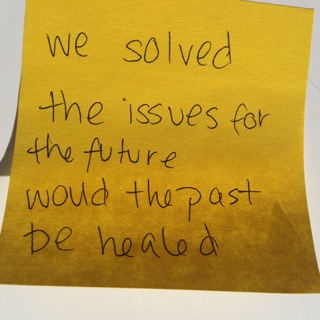 we solved
the issues for
the future
woud the past
be healed